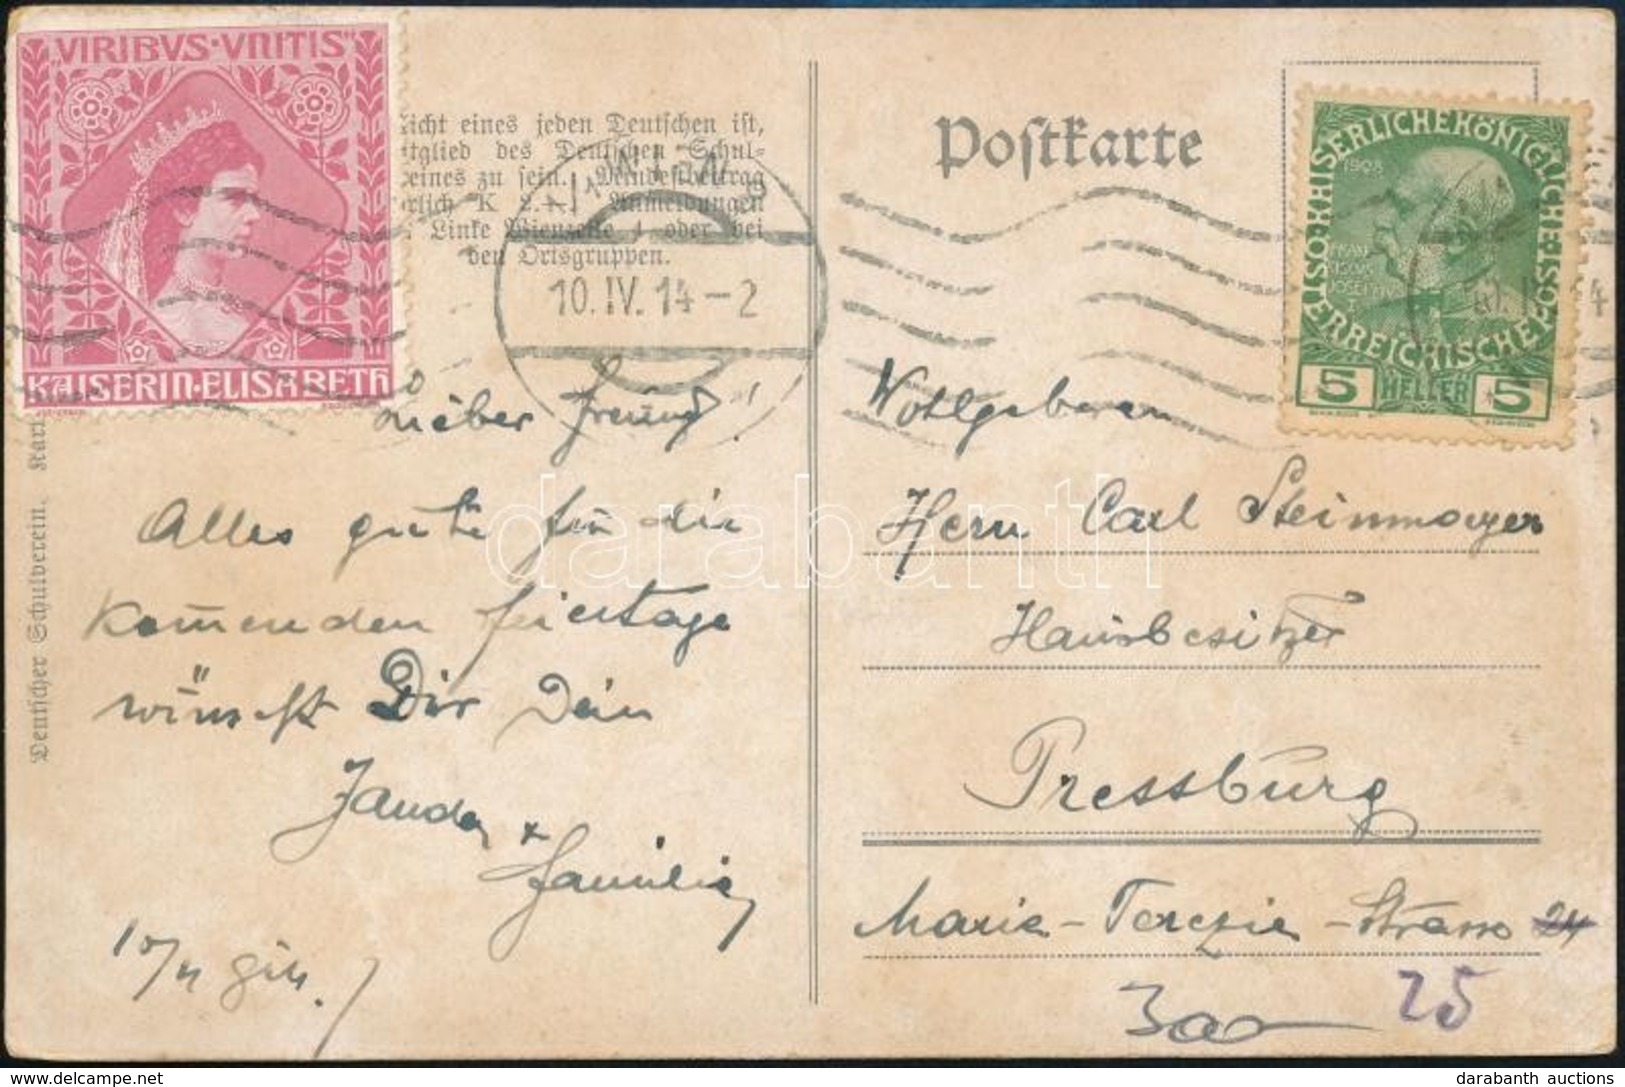 VIRIBVS·VNITIS
KAISERIN·ELISABETH
licht eines jeden Deutschen ist,
itglied des Deutschen Schul-
eines zu sein. Mindestbeitrag
rlich K 2.—. Anmeldungen
Linke Wienzeile 4 oder bei
den Ortsgruppen.
10.IV.14-2
Postkarte
KAISERLICHEKÖNIGLICHE
ÖSTERREICHISCHEPOST
1908
5 HELLER 5
Deutscher Schulverein.
Lieber Freund!
Alles gute für die
kommenden feiertage
wünscht Dir Dein
Janda
+ Familie
Wohlgeboren
Herrn Carl Steinmayer
Hausbesitzer
Pressburg
Marie-Terezie-Strasse 24
25
darabanth
darabanth auctions